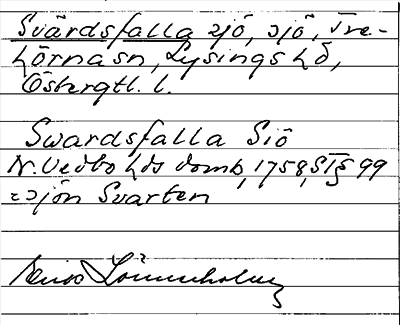 Svärdsfalla sjö, sjö, Tre-
hörna sn, Lysings hd,
Östergtl. l.
Swardsfalla Siö
N. Vedbo hds domb, 1758, § 99
= sjön Svarten